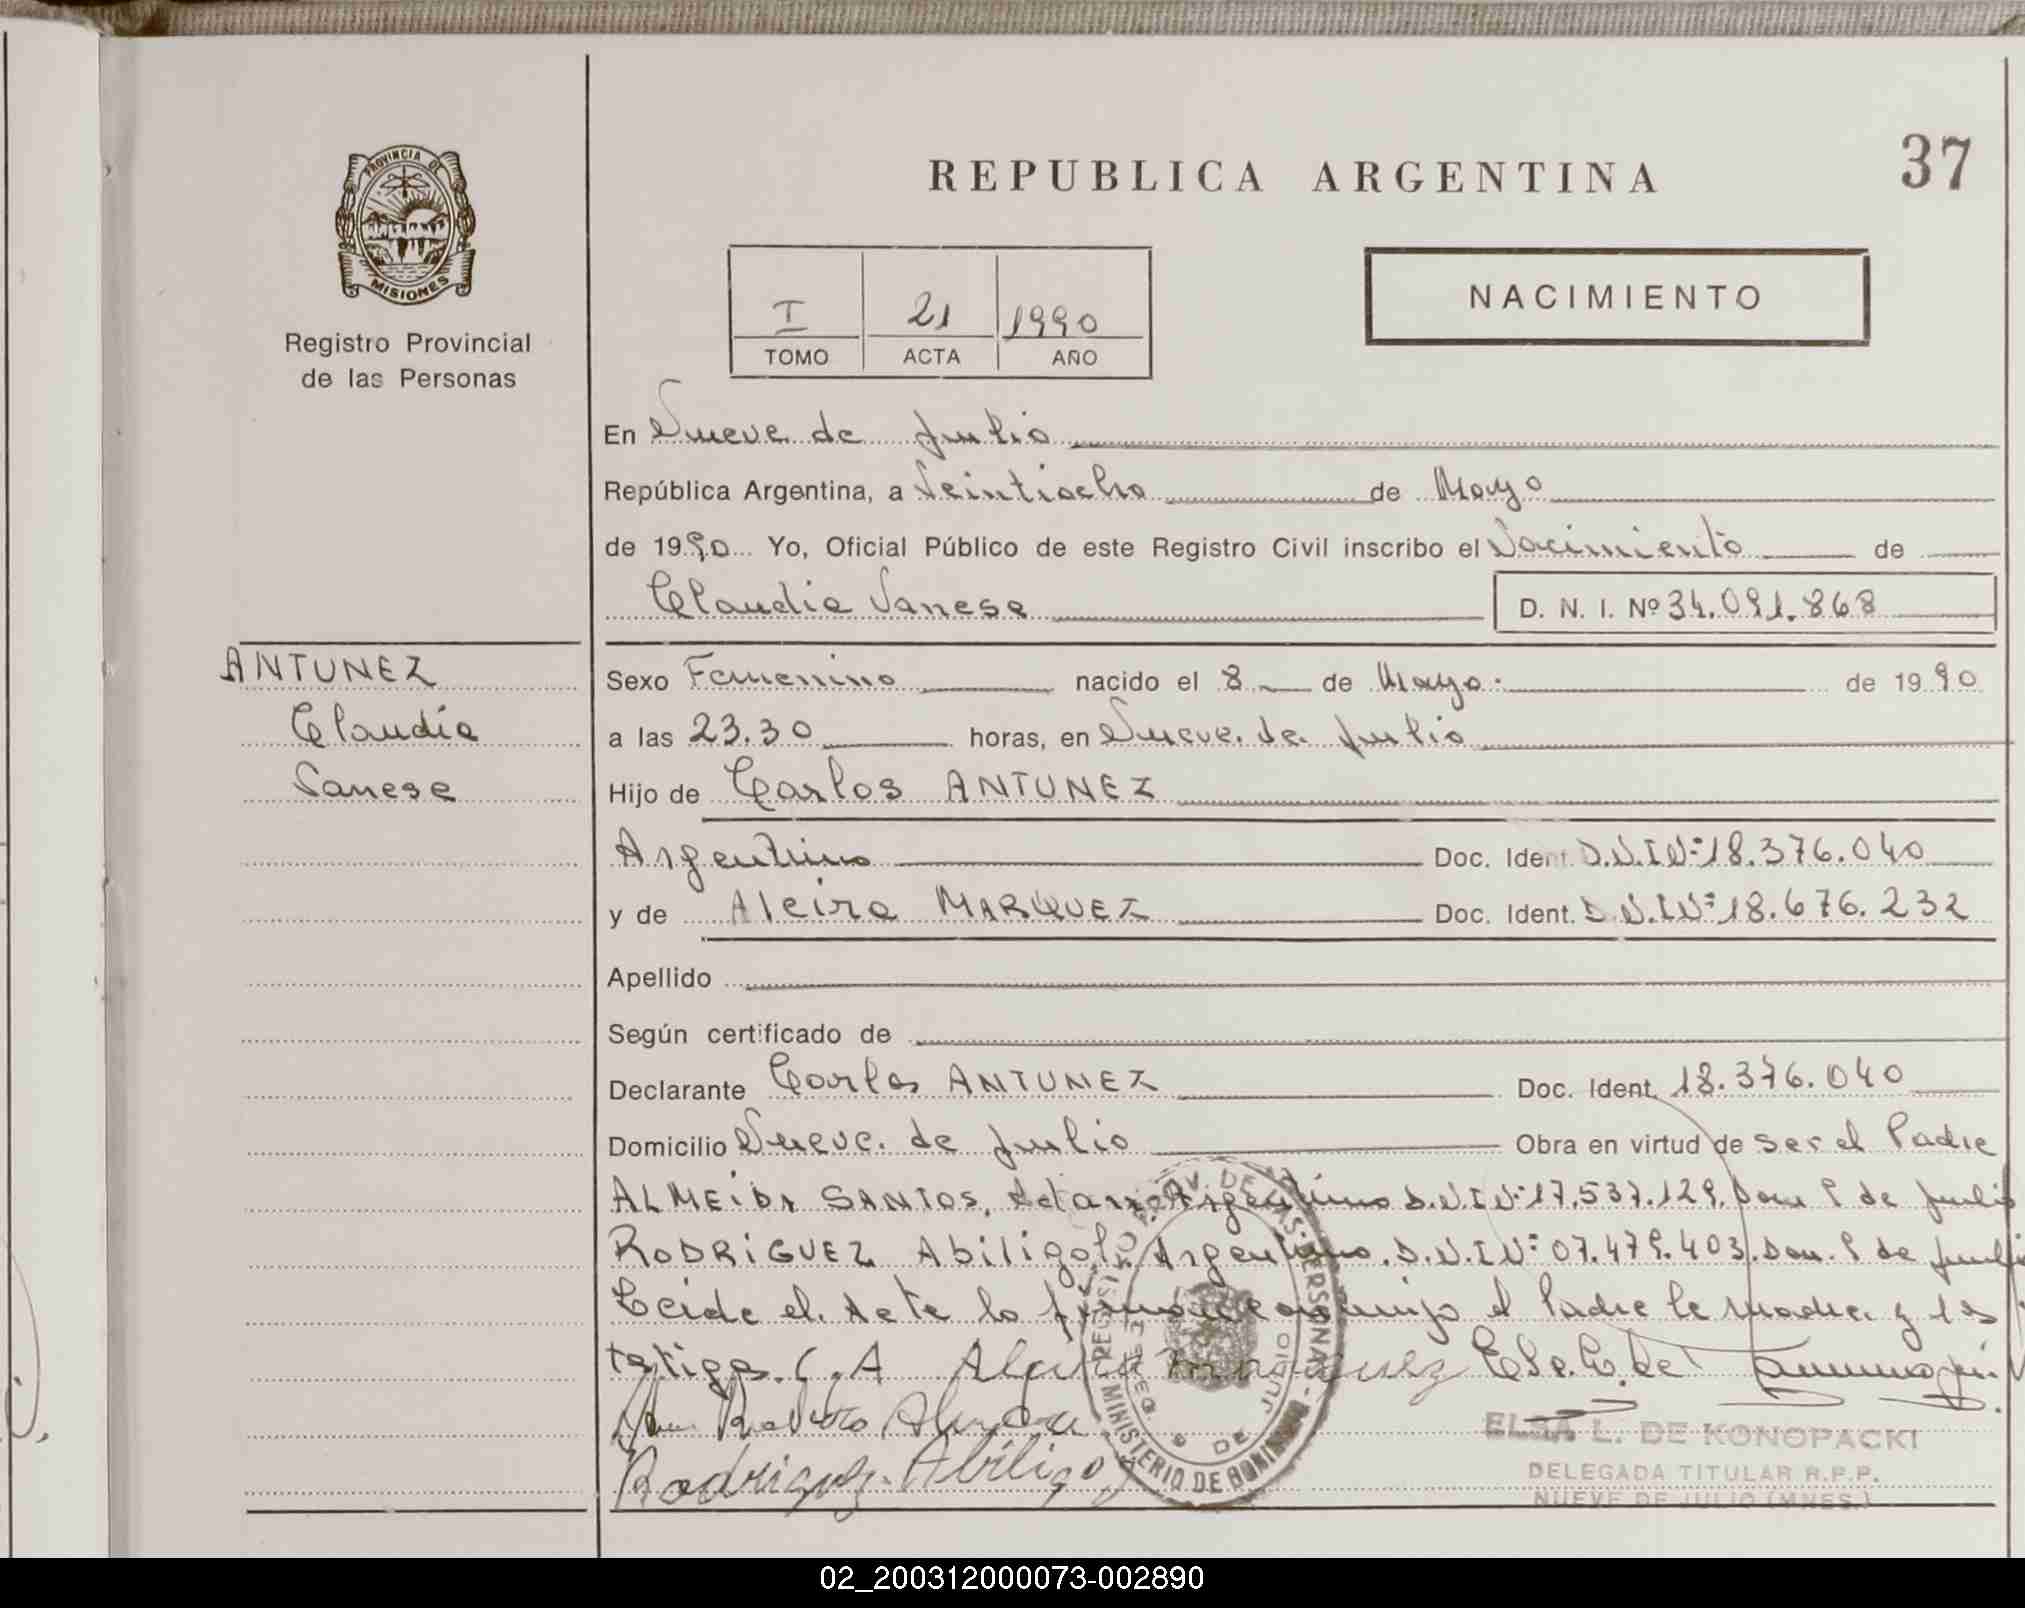 PROVINCIA DE
MISIONES
Registro Provincial
de las Personas
REPUBLICA ARGENTINA
37
I 21 1990
TOMO ACTA AÑO
NACIMIENTO
En Nueve de Julio
República Argentina, a Veintiocho de Mayo
de 1990 Yo, Oficial Público de este Registro Civil inscribo el Nacimiento de
Claudia Vanesa
D. N. I. Nº 34.091.868
ANTUNEZ
Claudia
Vanesa
Sexo Femenino nacido el 8 de Mayo. de 1990
a las 23.30 horas, en Nueve de Julio
Hijo de Carlos ANTUNEZ
Argentino Doc. Ident. D.N.I Nº 18.376.040
y de Alcira MARQUEZ Doc. Ident. D.N.I Nº 18.676.232
Apellido
Según certificado de
Declarante Carlos ANTUNEZ Doc. Ident. 18.376.040
Domicilio Nueve de Julio Obra en virtud de ser el Padre
ALMEiDA SANTOS, Argentino D.N.I Nº 17.537.129. Dom 9 de Julio
RODRiGUEZ Abiligol, Argentino. D.N.I Nº 07.479.403. Dom. 9 de Julio
Leida el Acta la conmigo el Padre la madre y los
testigos. C.A Alcira Marquez
Almeida
Rodriguez Abiligol
REGISTRO PROV. DE LAS PERSONAS
MINISTERIO DE GOBIERNO
9 DE JULIO
ELSA L. DE KONOPACKI
DELEGADA TITULAR R.P.P.
NUEVE DE JULIO (MNES.)
02_200312000073-002890